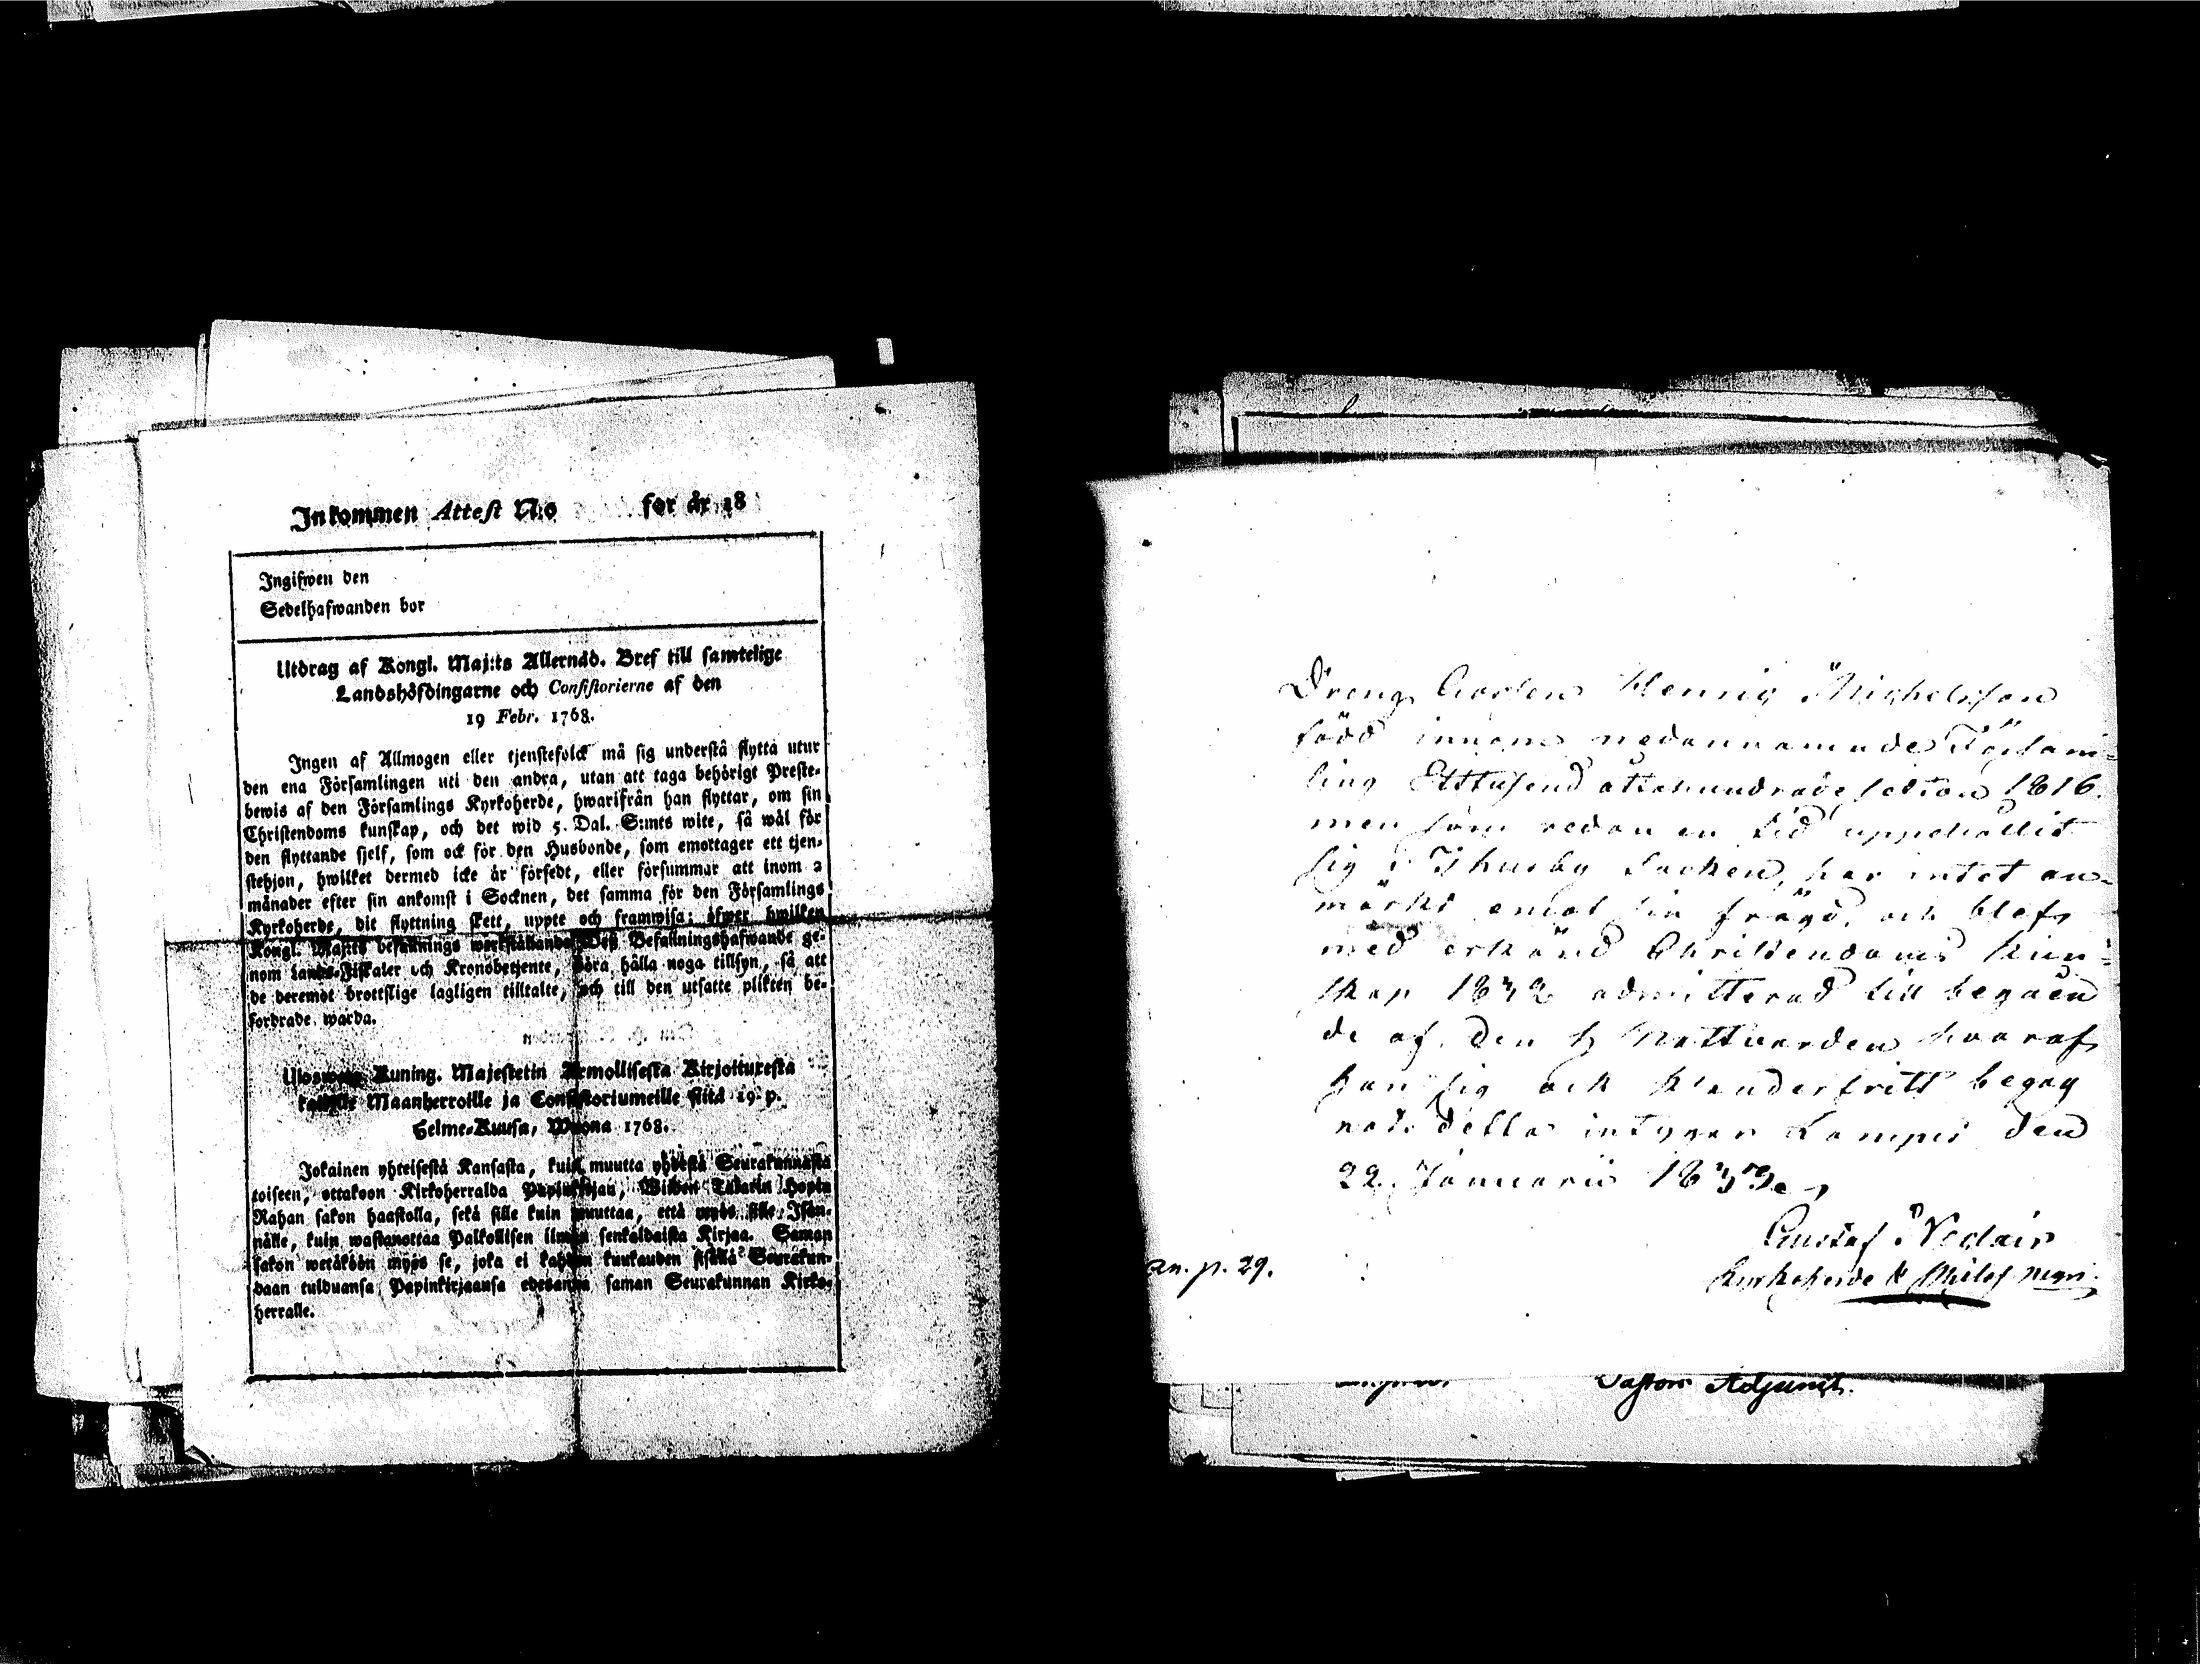 Inkommen Attest N:o för år 18
Ingifwen den
Sedelhafwanden bor
Utdrag af Kongl. Maj:ts Allernåd. Bref till samtelige
Landshöfdingarne och Consistorierne af den
19 Febr. 1768.
Ingen af Allmogen eller tjenstefolck må sig understå flytta utur
den ena Församlingen uti den andra, utan att taga behörigt Preste-
bewis af den Församlings Kyrkoherde, hwarifrån han flyttar, om sin
Christendoms kunskap, och det wid 5. Dal. S:mts wite, så wäl för
den flyttande sjelf, som ock för den Husbonde, som emottager ett tjen-
stehjon, hwilket dermed icke är försedt, eller försummar att inom 2
månader efter sin ankomst i Socknen, det samma för den Församlings
Kyrkoherde, dit flyttning skett, uppte och framwisa; öfwer hwilken
Kongl. Maj:ts befallnings werkställande Deß Befallningshafwande ge-
nom Lands-Fiskaler och Kronobetjente, böra hålla noga tillsyn, så att
de deremot brottslige lagligen tilltalte, och till den utsatte plikten be-
fordrade warda.
Kuning. Majestetin Armollisesta Kirjoituxesta
Maanherroille ja Consistoriumeille siitä 19 p.
Helme-Kuusa, Wuonna 1768.
Jokainen yhteisestä Kansasta, kuin muutta yhdestä Seurakunnasta
toiseen, ottakoon Kirkoherralda Papinkirjan, Wiiden Talarin Hopia
Rahan sakon haastolla, sekä sille kuin muuttaa, että myös sille Isän-
nälle, kuin wastanottaa Palkollisen ilman senkaldaista Kirjaa. Saman
sakon wetäköön myös se, joka ei kahden kuukauden sisällä Seurakun-
daan tulduansa Papinkirjaansa edesanna saman Seurakunnan Kirko-
herralle.
Dreng Carlen Henric Michelsson
född innom nedannamnde Försam-
ling Ettusend ottahundrade sexton 1816.
men som redan en tid uppehållit
sig i Thusby Socken, har intet an-
märkt emot sin frägd, och blef
med erkänd Christendoms kun-
skap 1832 admitterad till begåen
de af den H Nattvarden hvaraf
han sig ock klanderfritt begag
nat. detta intygar Lampis den
22. Januarii 1833.
Gustaf
Kyrkoherde &
an. p. 29.
Pastors Adjunct.